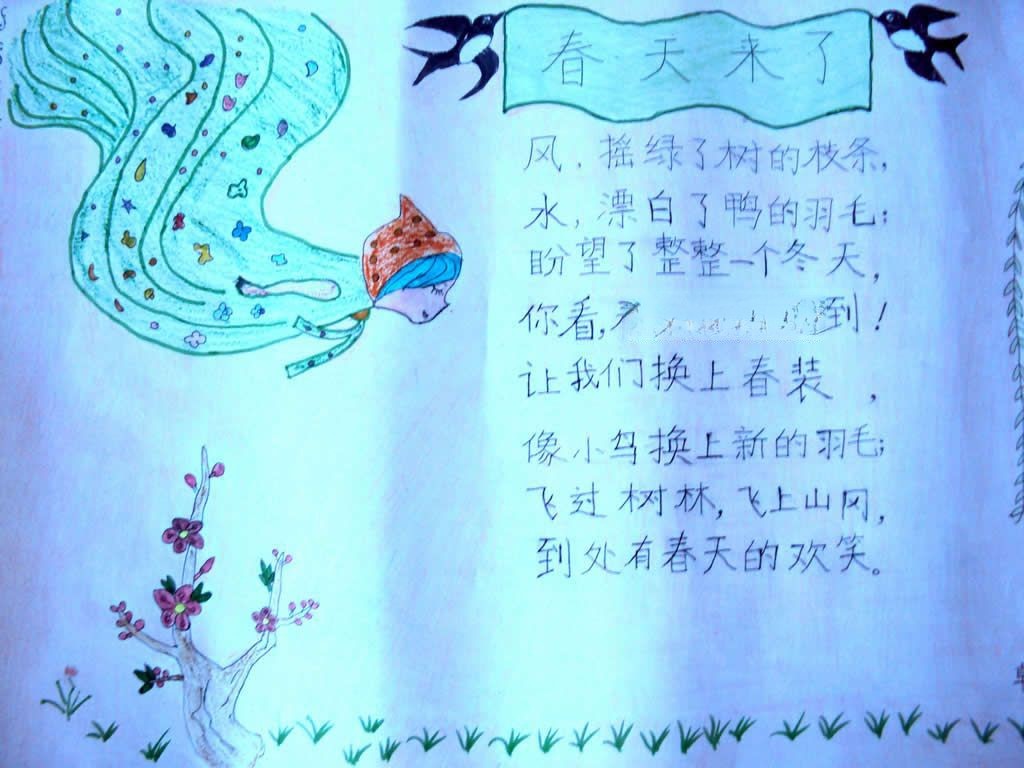 春天来了
风,摇绿了树的枝条,
水,漂白了鸭的羽毛;
盼望了整整一个冬天,
你看,到!
让我们换上春装,
像小鸟换上新的羽毛;
飞过树林,飞上山冈,
到处有春天的欢笑。